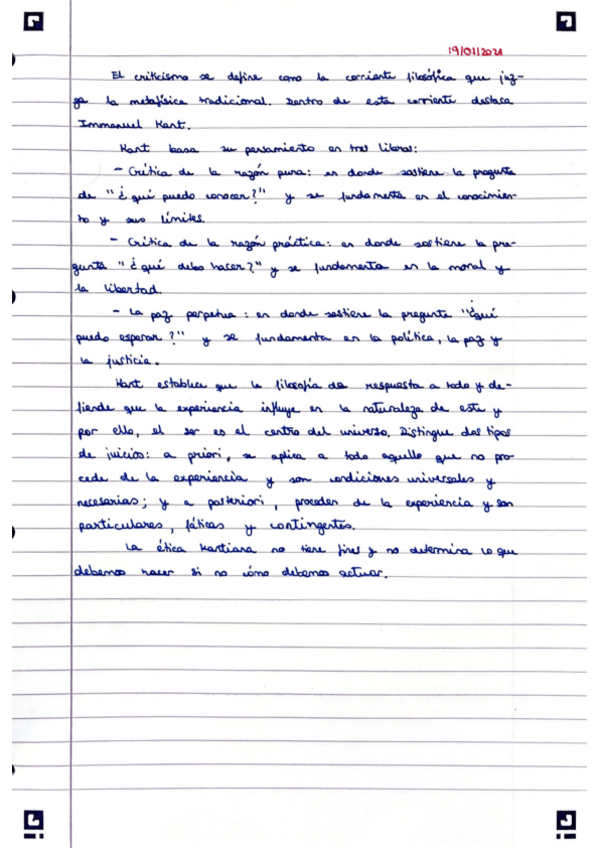 19/01/2021
El criticismo se define como la corriente filosófica que juz-
ga la metafísica tradicional. Dentro de esta corriente destaca
Immanuel Kant.
Kant basa su pensamiento en tres libros:
- Crítica de la razón pura: en donde sostiene la pregunta
de "¿qué puedo conocer?" y se fundamenta en el conocimien-
to y sus límites.
- Crítica de la razón práctica: en donde sostiene la pre-
gunta "¿qué debo hacer?" y se fundamenta en la moral y
la libertad.
- La paz perpetua: en donde sostiene la pregunta "¿qué
puedo esperar?" y se fundamenta en la política, la paz y
la justicia.
Kant establece que la filosofía da respuesta a todo y de-
fiende que la experiencia influye en la naturaleza de esta y
por ello, el ser es el centro del universo. Distingue dos tipos
de juicios: a priori, se aplica a todo aquello que no pro
cede de la experiencia y son condiciones universales y
necesarias; y a posteriori, proceden de la experiencia y son
particulares, fáticas y contingentes.
La ética kantiana no tiene fines y no determina lo que
debemos hacer si no cómo debemos actuar.